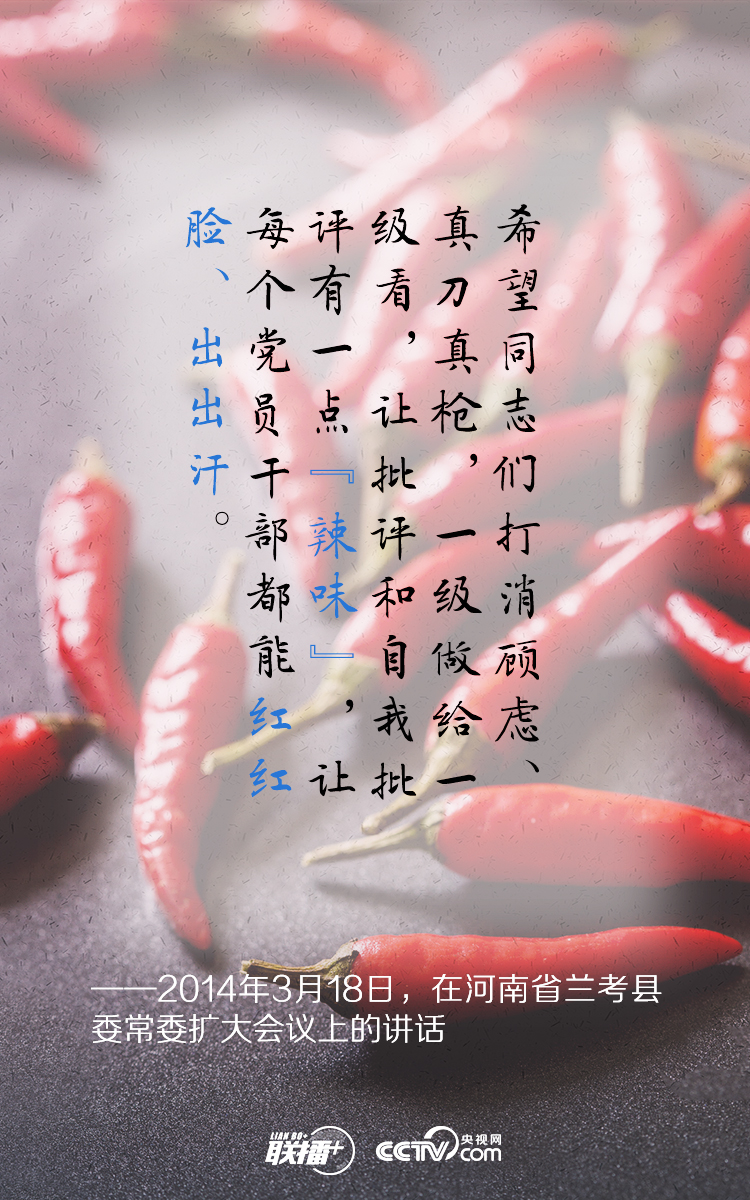 希望同志们打消顾虑、
真刀真枪，一级做给一
级看，让批评和自我批
评有一点『辣味』，让
每个党员干部都能红红
脸、出出汗。
——2014年3月18日，在河南省兰考县
委常委扩大会议上的讲话
LIAN BO+
联播+
CCTV.com
央视网